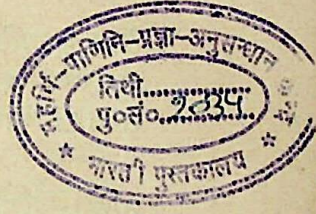 महर्षि–पाणिनि–प्रज्ञा–अनुसन्धान
तिथी..................
पु०सं० २०३५
* भारती पुस्तकालय *